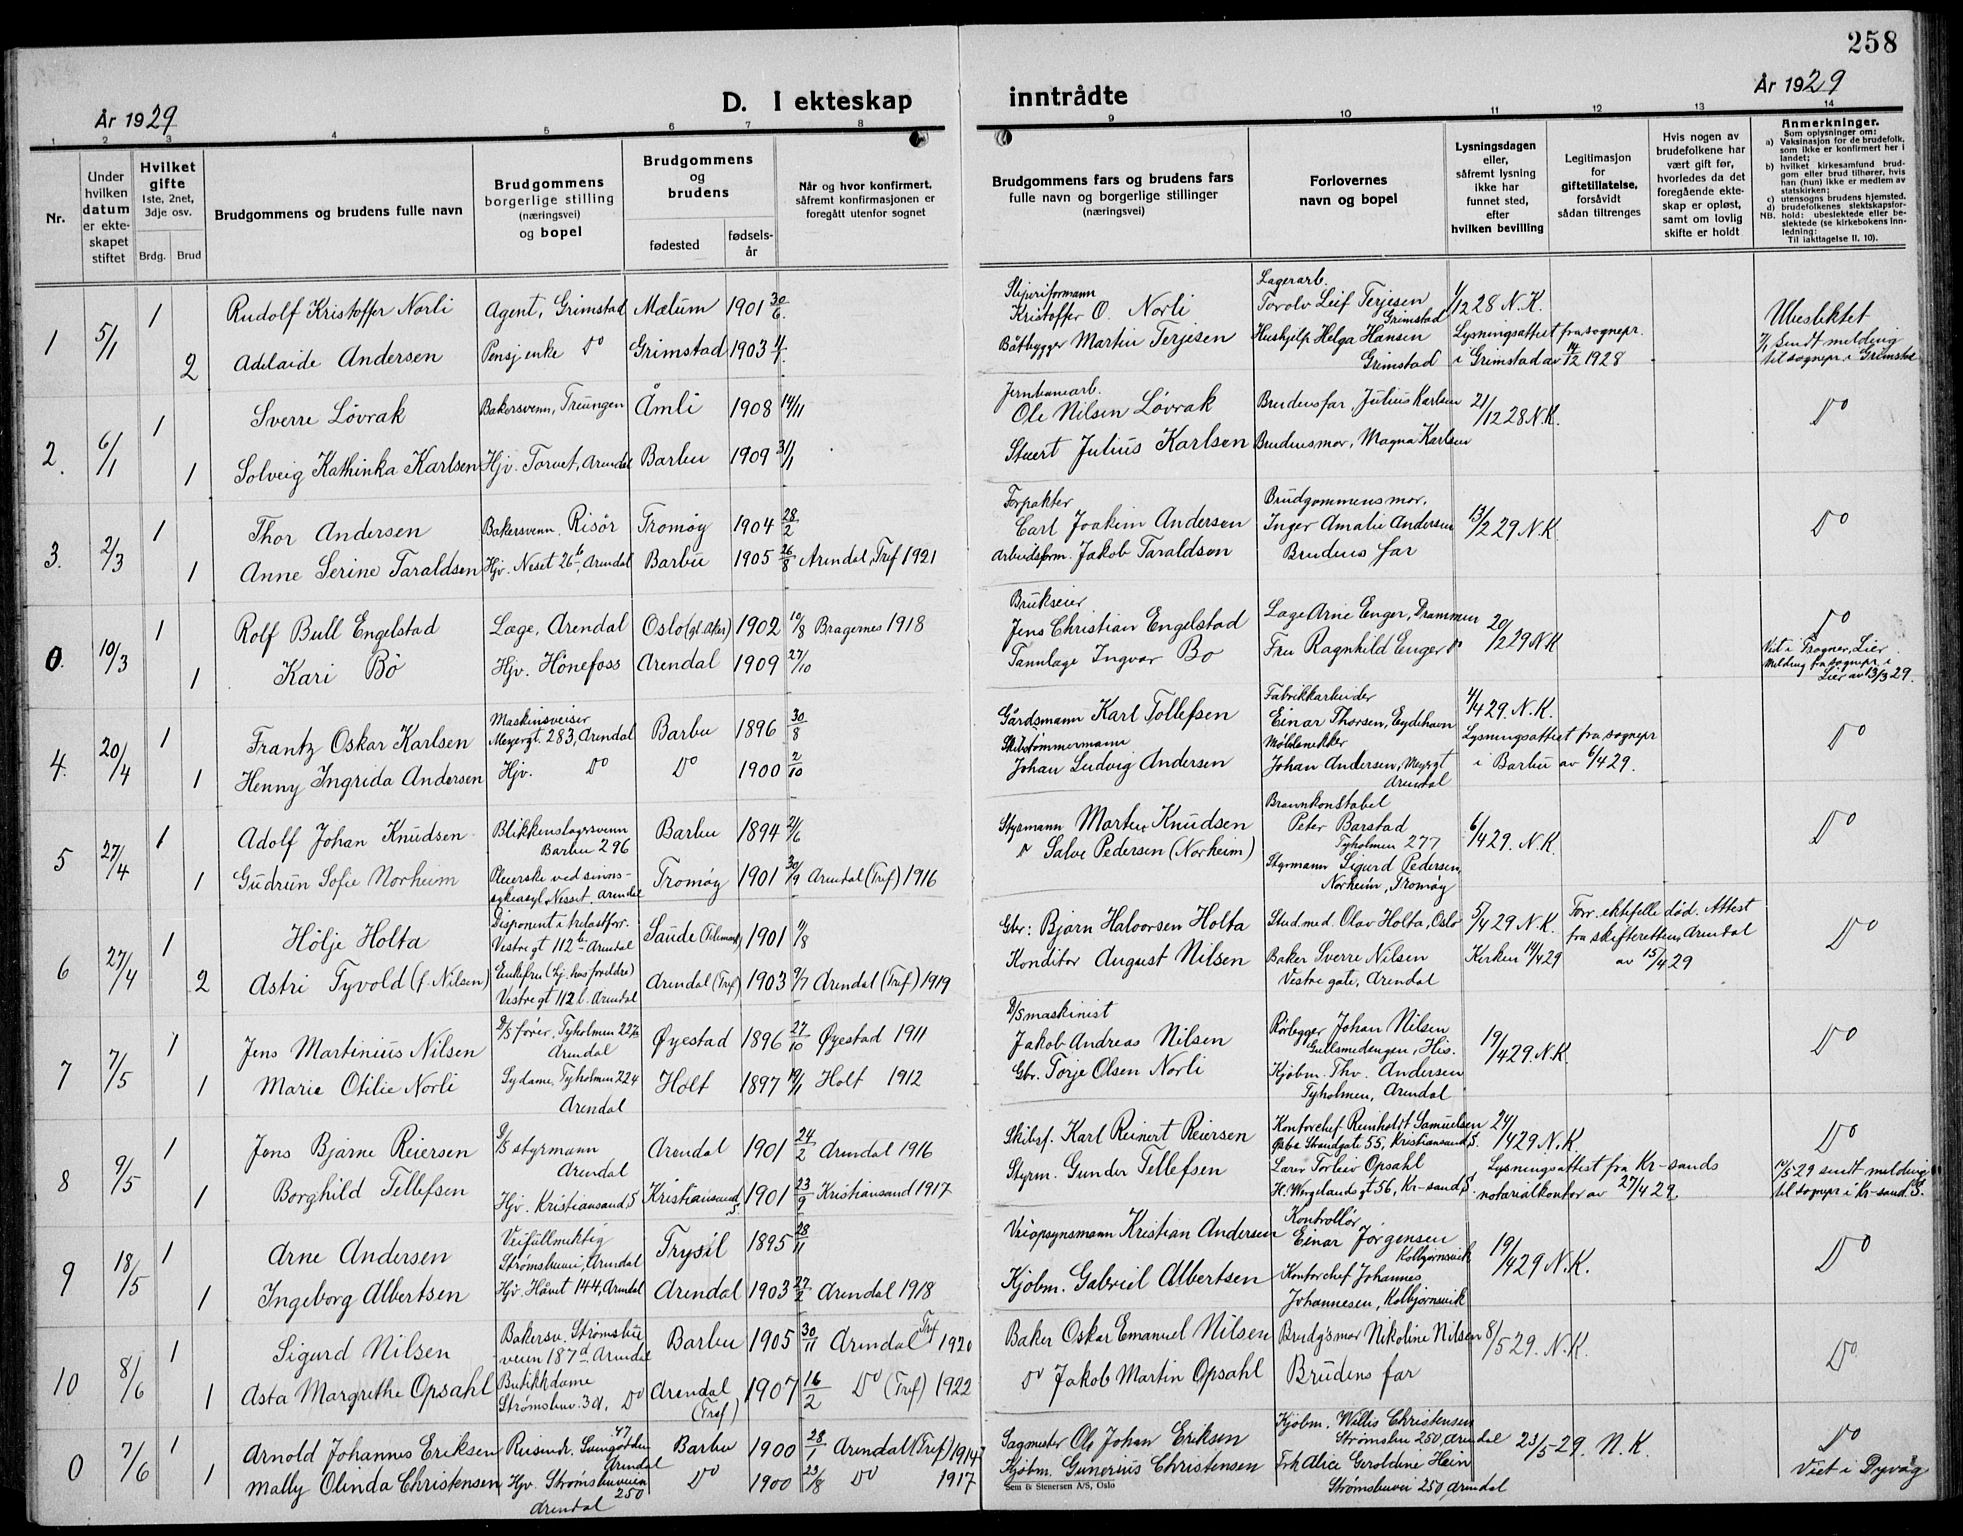 258
År 1929
D. I ekteskap inntrådte
År 1929
1 2 3 4 5 6 7 8 9 10 11 12 13 14
Nr.
Under hvilken datum er ekteskapet stiftet
Hvilket gifte
1ste, 2net, 3dje osv.
Brdg. Brud
Brudgommens og brudens fulle navn
Brudgommens borgerlige stilling (næringsvei) og bopel
Brudgommens og brudens
fødested
fødselsår
Når og hvor konfirmert, såfremt konfirmasjonen er foregått utenfor sognet
Brudgommens fars og brudens fars fulle navn og borgerlige stillinger (næringsvei)
Forlovernes navn og bopel
Lysningsdagen eller, såfremt lysning ikke har funnet sted, efter hvilken bevilling
Legitimasjon for giftetillatelse, forsåvidt sådan tiltrenges
Hvis nogen av brudefolkene har vært gift før, hvorledes da det foregående ekteskap er opløst, samt om lovlig skifte er holdt
Anmerkninger.
Som oplysninger om:
a) Vaksinasjon for de brudefolk, som ikke er konfirmert her i landet;
b) hvilket kirkesamfund brudgom eller brud tilhører, hvis han (hun) ikke er medlem av statskirken;
c) utensogns brudens hjemsted.
d) brudefolkenes slektskapsforhold: ubeslektede eller beslektede (se kirkebokens Innledning: Til iakttagelse II. 10).
NB.
1 5/1 1 Rudolf Kristoffer Norli Agent, Grimstad Mælum 1901 30/6 Sliperiformann Kristoffer O. Norli Lagerarb. Torolv Leif Terjesen Grimstad 1/12 28 N.K. Ubeslektet
2 Adelaide Andersen Pensj enke Do Grimstad 1903 4/1 Båtbygger Martin Terjesen Hushjelp Helga Hansen Grimstad Lysningsattest fra sognepr. i Grimstad av 14/12 1928 7/1 sendt melding til sognepr. i Grimstad
2. 6/1 1 Sverre Lövrak Bakersvenn, Treungen Åmli 1908 14/11 Jernbanearb. Ole Nilsen Lövrak Brudens far, Julius Karlsen 21/12 28 N.K. Do
1 Solveig Kathinka Karlsen Hjv. Torvet, Arendal Barbu 1909 31/1 Stuert Julius Karlsen Brudens mor, Magna Karlsen
3. 2/3 1 Thor Andersen Bakersvenn. Risör Tromøy 1904 28/2 Forpakter Carl Joakim Andersen Brudgommens mor, Inger Amalie Andersen 13/2 29 N.K. Do
1 Anne Serine Taraldsen Hjv. Neset 26b, Arendal Barbu 1905 26/8 Arendal, Tref 1921 Arbeidsform. Jakob Taraldsen Brudens far
0. 10/3 1 Rolf Bull Engelstad Læge, Arendal Oslo (gl. Aker) 1902 10/8 Bragernes 1918 Brukseier Jens Christian Engelstad Læge Arne Enger, Drammen 20/2 29 N.K Do
1 Kari Bö Hjv. Hönefoss Arendal 1909 27/10 Tannlæge Ingvar Bo Fru Ragnhild Enger Do Viet i Frogner, Lier. Melding fra sognepr. i Lier av 13/3 29.
4. 20/4 1 Frantz Oskar Karlsen Maskinsveiser Meyergt. 283, Arendal Barbu 1896 30/8 Gårdsmann Karl Tollefsen Fabrikkarbeider Einar Thorsen, Eydehavn 4/4 29. N.K. Do
1 Henny Ingrida Andersen Hjv. Do Do 1900 2/10 Skibstømmermann Johan Ludvig Andersen Møblsnekker Johan Andersen, Meyergt Arendal Lysningsattest fra sognepr i Barbu av 6/4 29.
5 27/4 1 Adolf Johan Knudsen Blikkenslagersvenn Barbu 296 Barbu 1894 21/6 Styrmann Martin Knudsen Brannkonstabel Peter Barstad Tyholmen 277 6/4 29. N.K. Do
1 Gudrun Sofie Norheim Pleierske ved sinnssykeasyl, Nesset, Arendal Tromøy 1901 30/9 Arendal (Tref) 1916 Do Salve Pedersen (Norheim) Styrmann Sigurd Pedersen, Norheim, Tromøy
6 27/4 1 Hölje Holta Disponent i trelastforr. Vestregt 112b Arendal Saude (Telemark) 1901 9/8 Gbr: Bjørn Halvorsen Holta Stud. med. Olav Holta, Oslo 5/4 29 N.K. Forr. ektefelle död. Attest fra skifteretten, Arendal av 15/4 29 Do
2 Astri Tyvold (f. Nilsen) Enkefru (hj. hos foreldre) Vestregt 112 b. Arendal Arendal (Tref) 1903 9/7 Arendal (Tref) 1919 Konditor August Nilsen Baker Sverre Nilsen Vestre gate, Arendal Kirken 14/4 29
7 7/5 1 Jens Martinius Nilsen D/S fører, Tyholmen 227b Arendal Øyestad 1896 27/10 Øyestad 1911 D/S maskinist Jakob Andreas Nilsen Rørlegger Johan Nilsen Gullsmedengen, His. 19/4 29. N.K. Do
1 Marie Otilie Norli Sydame, Tyholmen 224 Arendal Holt 1897 19/11 Holt 1912 Gbr. Torje Olsen Norli Kjøbm. Thv. Andersen Tyholmen, Arendal
8 9/5 1 Jens Bjarne Reiersen D/S styrmann Arendal Arendal 1901 24/2 Arendal 1916 Skibsf. Karl Reinert Reiersen Kontorchef Reinholdt Samuelsen Østre Strandgate 55, Kristiansand S. 24/4 29 N.K. Do
1 Borghild Tellefsen Hjv. Kristiansand S Kristiansand S. 1901 23/9 Kristiansand 1917 Styrm. Gunder Tellefsen Lærer Torleiv Opsahl H. Wergelands gt 56, Kr-sand S. Lysningsattest fra Kr-sands notarialkontor av 27/4 29. 10/5 29 sendt melding til sognepr i Kr-sand S.
9 18/5 1 Arne Andersen Veifullmektig Strømsbuvei, Arendal Trysil 1895 28/11 Veiopsynsmann Kristian Andersen Kontrollør Einar Jörgensen Kolbjørnsvik 19/4 29 N.K. Do
1 Ingeborg Albertsen Hjv. Håvet 144, Arendal Arendal 1903 27/2 Arendal 1918 Kjøbm. Gabriel Albertsen Kontorchef Johannes Johannesen, Kolbjørnsvik
10 8/6 1 Sigurd Nilsen Bakersv. Strømsbuveien 187d Arendal Barbu 1905 30/11 Arendal Tref 1920 Baker Oskar Emanuel Nilsen Brudg's mor Nikoline Nilsen 8/5 29. N.K. Do
1 Asta Margrethe Opsahl Butikkdame Strømsbuv. 3d. Do Arendal (Tref) 1907 16/2 Do (Tref) 1922 Do Jakob Martin Opsahl Brudens far
0 7/6 1 Arnold Johannes Eriksen Barbu 1900 28/1 Arendal (Tref) 1914 Sagmester Ole Johan Eriksen Kjøbm. Willis Christensen Strømsbu 250, Arendal 23/5-29. N.K. Do
1 Mally Olinda Christensen Hjv. Strømsbuveien 250 Arendal Do 1900 23/8 Do 1917 Kjøbm. Gunerius Christensen Frk Alice Geroldine Hein Strømsbuvei 250, Arendal Viet i Dypvåg
Sem & Stenersen A/S, Oslo